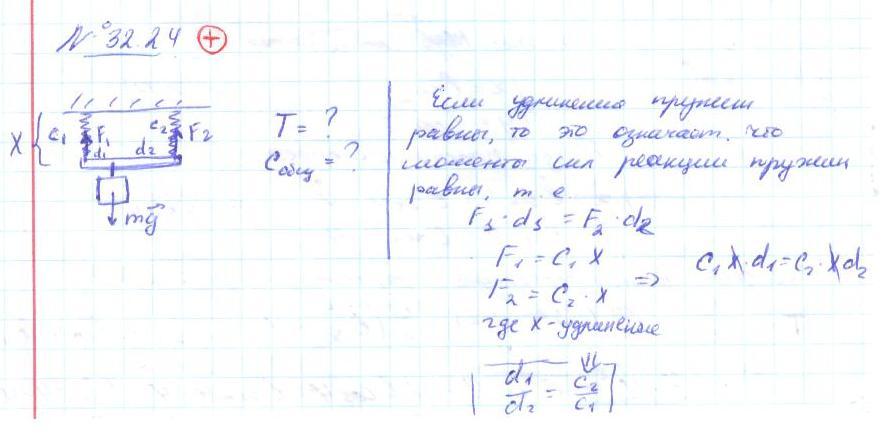 № 32.24 +
C₁ F₁ C₂ F₂
X d₁ d₂
mg⃗
T = ?
Cобщ = ?
Если удлинения пружин
равны, то это означает, что
моменты сил реакции пружин
равны, т. е.
F₁ · d₁ = F₂ · d₂
F₁ = C₁ X
F₂ = C₂ · X
⇒ C₁ X · d₁ = C₂ · X d₂
где X - удлинение
⇓
d₁/d₂ = C₂/C₁